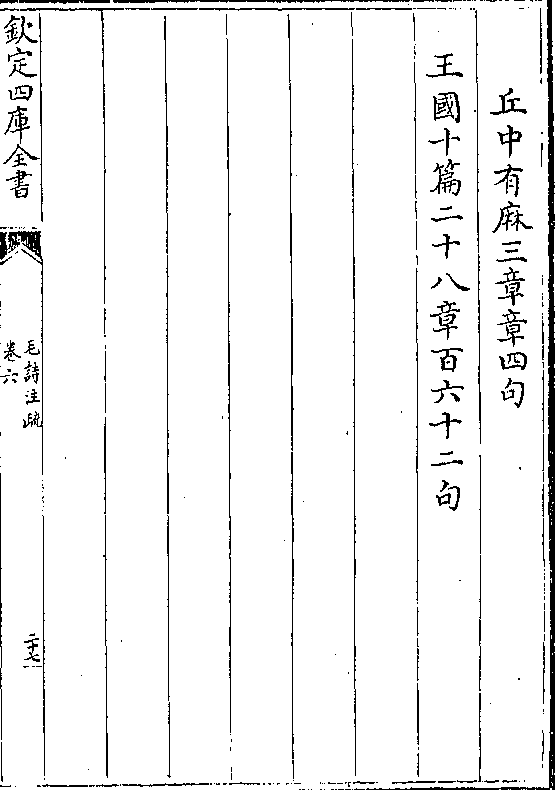 丘中有麻三章章四句
王國十篇二十八章百六十二句
欽定四庫全書
毛詩注疏
卷六
二十七